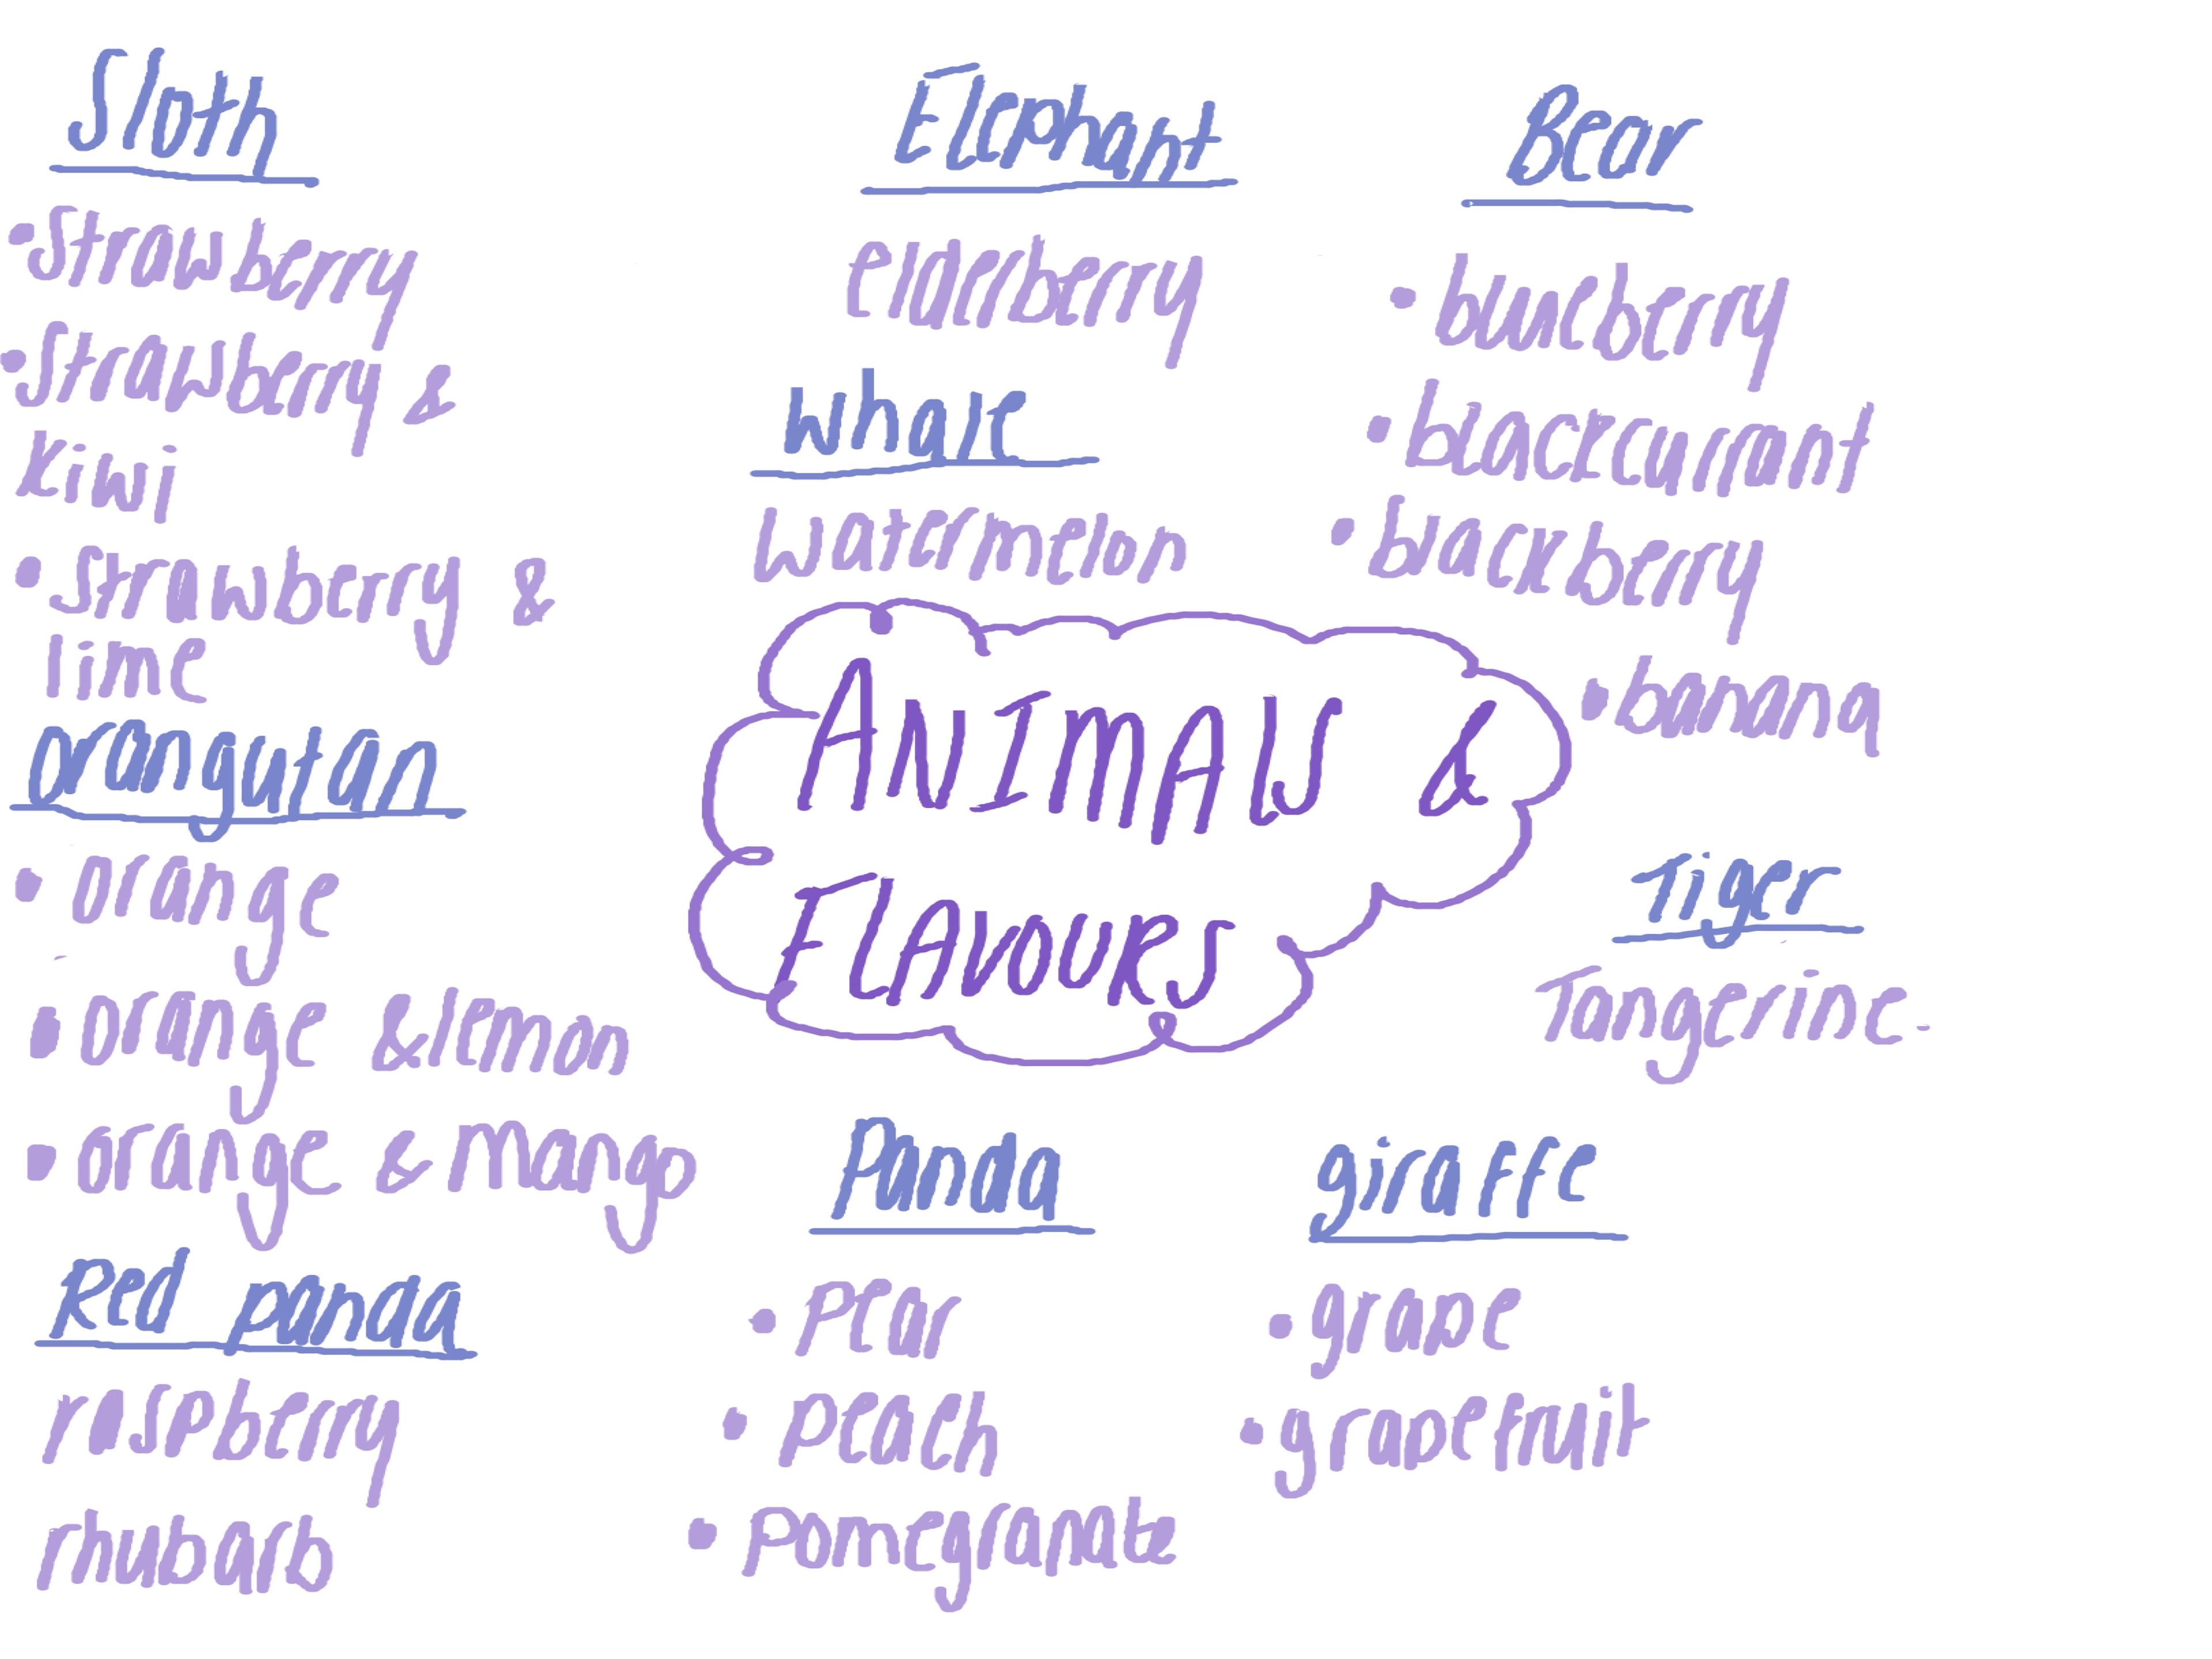 Sloth
• Strawberry
• Strawberry &
kiwi
• Strawberry &
lime
orangutan
• orange
• orange & lemon
• orange & mango
Red panda
rasberry
rhubarb
Elephant
elderberry
whale
Watermelon
ANIMALS &
FLAVOURS
Panda
• Pear
• Peach
• Pomegranate
Bear
• blueberry
• blackcurrant
• blackberry
• banana
Tiger
Tangerine
giraffe
• grape
• grapefruit